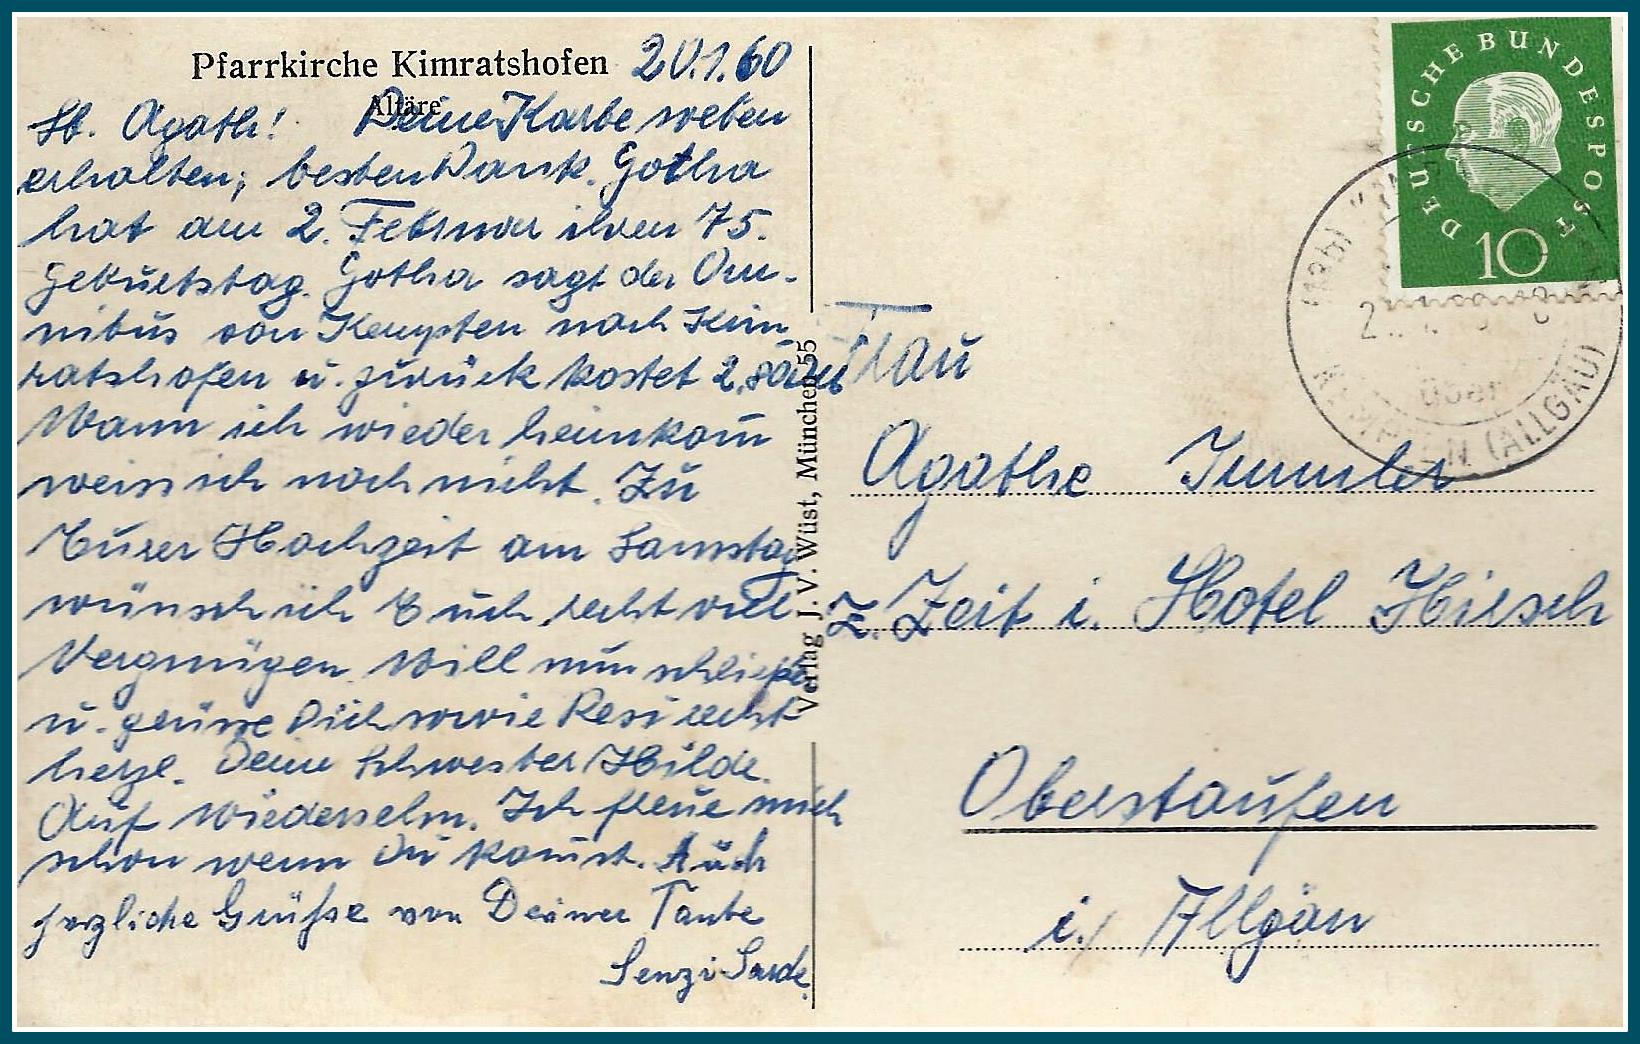 Pfarrkirche Kimratshofen 20.1.60
Altäre
Lb. Agath! Deine Karte soeben
erhalten, besten Dank. Gotha
hat am 2. Februar ihren 75.
Geburtstag. Gotha sagt der Om-
nibus von Kempten nach Kim
ratshofen u. zurück kostet 2,80
Wann ich wieder heimkom
weiss ich noch nicht. Zu
Eurer Hochzeit am Samstag
wünsch ich Euch recht viel
Vergnügen. Will nun schließen
u. grüsse Dich sowie Resi recht
herzl. Deine Schwester Hilde.
Auf wiedersehn. Ich freue mich
schon wenn Du komst. Auch
herzliche Grüße von Deiner Tante
Senzi
Verlag J. V. Wüst, München 55
DEUTSCHE BUNDESPOST
10
über
KEMPTEN (ALLGÄU)
Frau
Agathe Immler
z. Zeit i. Hotel Hirsch
Oberstaufen
i./ Allgäu